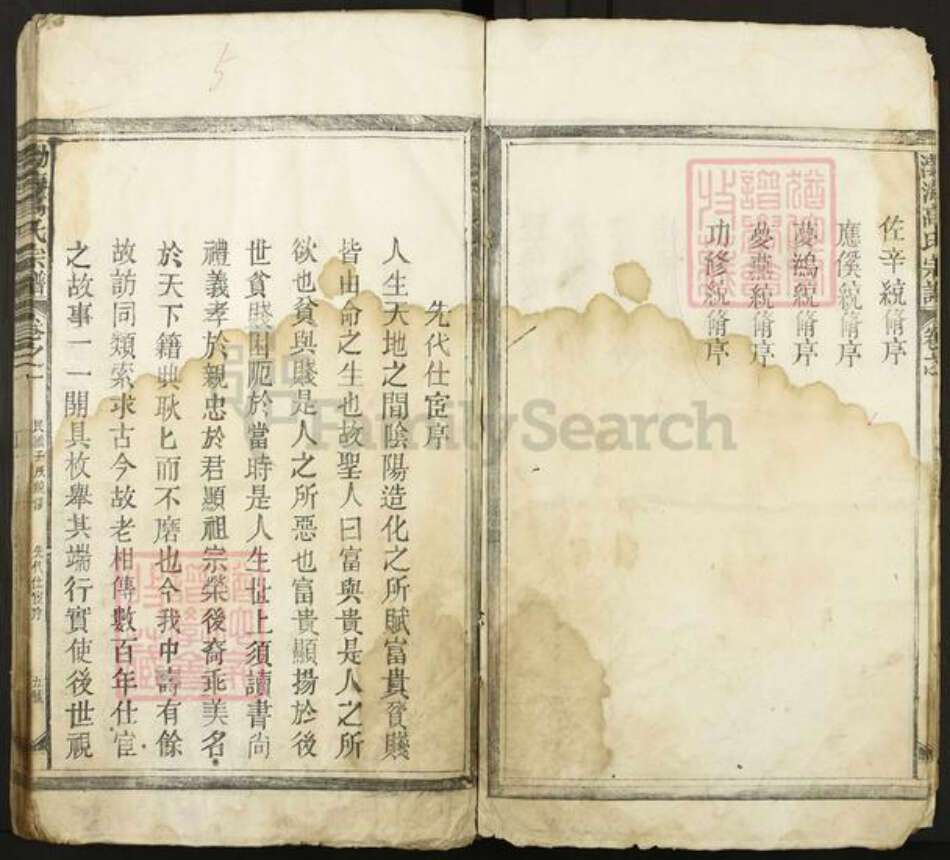 佐辛統脩序
應僕統脩序
夢鴻統脩序
夢燕統脩序
功修統脩序
渤海高氏宗譜
先代仕宦序
人生天地之間陰陽造化之所賦富貴貧賤
皆由命之生也故聖人曰富與貴是人之所
欲也貧與賤是人之所惡也富貴顯揚於後
世貧賤困厄於當時是人生世上須讀書尚
禮義孝於親忠於君顯祖宗榮後裔乖美名
於天下籍典耿匕而不磨也今我中壽有餘
故訪同類索求古今故老相傳數百年仕宦
之故事一一開具枚舉其端行實使後世視
渤海高氏宗譜 卷之一
先代仕宦序
FamilySearch
5